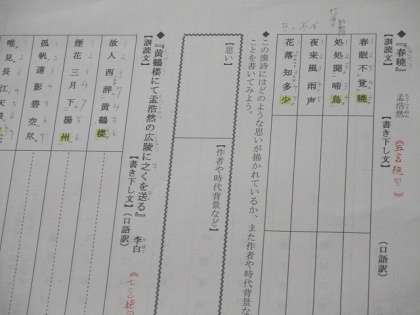 ◆『春暁』 孟浩然 (五言絶句)
【訓読文】 【書き下し文】 (口語訳)
春眠不覚暁
処処聞啼鳥
夜来風雨声
花落知多少
◆この漢詩にはどのような思いが描かれているか、また作者や時代背景な
ことを書いてみよう。
【思い】 【作者や時代背景など】
◆『黄鶴楼にて孟浩然の広陵に之くを送る』 李白
【訓読文】 【書き下し文】 (口語訳)
故人西辞黄鶴楼
煙花三月下揚州
孤帆遠影碧空尽
唯見長江天